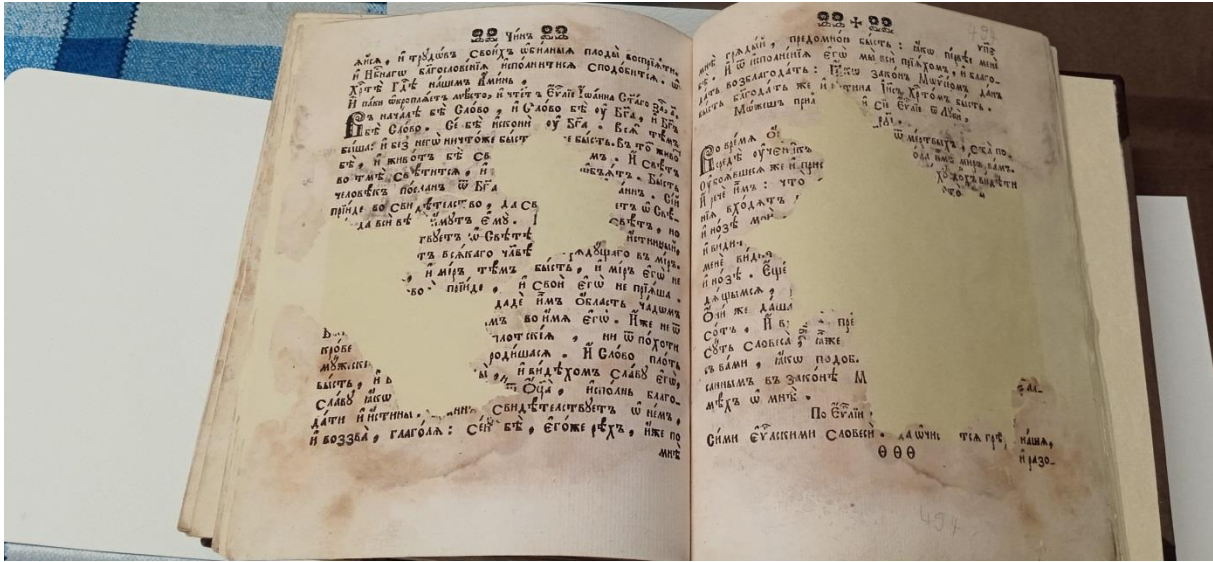 Чинъ
а́йсѧ, и҆ трꙋдѡ́въ Свои́хъ ѡ҆би́лныѧ плоды̀ воспрїѧ́ти,
и҆ Нб҃нагѡ бл҃гослове́нїѧ и҆спо́лнитисѧ Сподо́битсѧ. ѡ҆
Хрⷭ҇тѣ̀ Гдⷭ҇ѣ нашемъ А҆ми́нь.
И҆ па́ки ѡ҆кроплѧ́етъ мѣ́сто, и҆ чте́тъ Е҆ѵ҃лїе І҆ѡа́нна Ст҃а́го
Въ нача́лѣ бѣ̀ Сло́во, и҆ Сло́во бѣ̀ ᲂу҆ Бг҃а, и҆ Бг҃ъ
бѣ̀ Сло́во. Се́ бѣ̀ и҆сконѝ ᲂу҆ Бг҃а. Всѧ̑ тѣ́мъ
бы́ша: и҆ без̾ негѡ̀ ничто́же бы́сть е бы́сть. Въ то́мъ живо́
бѣ̀, и҆ живо́тъ бѣ̀ Св мъ. И҆ Свѣ́тъ
во тмѣ̀ Свѣ́титсѧ, и҆ ѡ҆бъѧ́тъ. Бы́сть
человѣ́къ по́слан ѿ Бг҃а а́ннъ. Се́й
прїи́де во Свидѣ́телство, да Св етъ ѡ҆ Свѣ-
да всѝ вѣ́ и҆́мꙋтъ Е҆мꙋ̀. свѣ́тъ, но
твꙋетъ ѡ҆ Свѣ́тѣ и҆́стинный,
тъ всѧ́каго чл҃вѣ грѧдꙋ́щаго въ мі́ръ.
, и҆ мі́ръ тѣ́мъ бы́сть, и҆ мі́ръ Е҆гѡ̀ не
во прїи́де, и҆ Своѝ Е҆гѡ̀ не прїѧ́ша.
дадѐ и҆́мъ Ѻ҆́бласть ча́дѡмъ
мъ во и҆́мѧ Е҆гѡ̀. И҆́же не ѿ
кро́ве пло́тскїѧ, ни ѿ по́хоти
мꙋ́жескї роди́шасѧ. И҆ Сло́во пло́ть
бы́сть, и҆ в ы, и҆ ви́дѣхомъ Сла́вꙋ Е҆гѡ̀,
Сла́вꙋ ꙗ҆́кѡ ѿ Ѻ҆ц҃а̀, и҆спо́лнь благо-
да́ти и҆ и҆́стины. аннъ Свидѣ́телствꙋетъ ѡ҆ не́мъ,
и҆ воззва̀, глаго́лѧ: Се́й бѣ̀, Е҆го́же рѣ́хъ, и҆́же по
мнѣ̀
491
мнѣ̀ грѧды́й, предомно́ю бы́сть: ꙗ҆́кѡ пе́рвѣе менѐ
бѣ̀. И҆ ѿ и҆сполне́нїѧ Е҆гѡ̀ мы̀ всѝ прїѧ́хомъ, и҆ благо-
да́ть возблагода́ть: Ꙗ҆́кѡ зако́н Мѡѷсе́омъ да́нъ
бы́сть бл҃года́ть же и҆ и҆́стина І҆и҃съ Хрⷭ҇то́мъ бы́сть.
Мо́жешъ при и҆ Сїѐ Е҆ѵ҃лїе ѿ Лꙋкѝ.
Во вре́мѧ Ѻ҆́ ѿ ме́ртвыхъ, Ста̀ по-
Средѣ̀ ᲂу҆чени̑къ мъ ми́ръ ва́мъ.
Оу҆боѧ́вшесѧ же и҆ при дꙋ́хъ ви́дѣти
И҆ речѐ и҆̀мъ: что̀
нїѧ вхо́дѧтъ
и҆ но́зѣ мо
и҆ ви́ди
менѐ ви́дѧ
и҆ но́зѣ. Е҆ще́
дѧщымсѧ,
Ѻ҆ни́ же да́ша
со́тъ. И҆ в пре
сꙋ́ть Словеса̀, ꙗ҆̀же
съ ва́ми, ꙗ҆́кѡ подоб
санным въ зако́нѣ М ѱал-
мѣ́хъ ѡ҆ мнѣ̀.
По Е҆ѵ҃лїи
Си́ми Е҆ѵⷢ҇лскими Словесы̀. да ѡ҆чи́с тсѧ грѣ нашѧ,
и҆ разо-
494